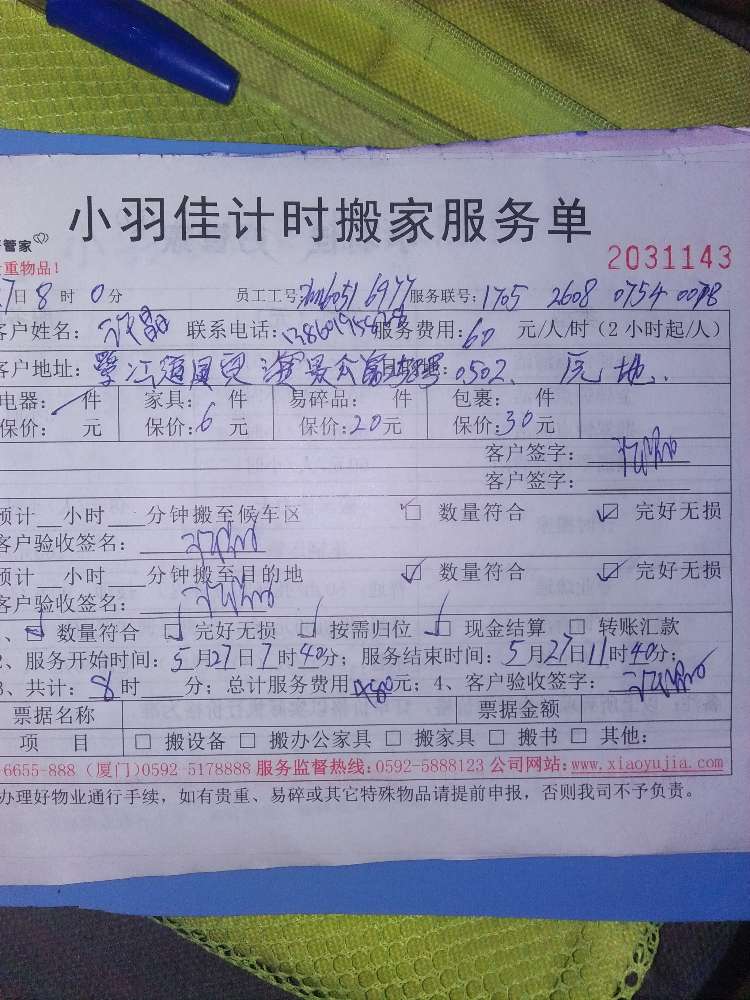 小羽佳计时搬家服务单
管家
重物品！
2031143
7日8时0分 员工工号: 6977 服务联号:1705 2608 0754 0018
客户姓名: 联系电话: 服务费用:60元/人/时(2小时起/人)
客户地址: 0502.
电器: 件 家具: 件 易碎品: 件 包裹: 件
保价: 元 保价:6元 保价:20元 保价:30元
客户签字:
客户签字:
预计__小时___分钟搬至候车区 ☑ 数量符合 ☑ 完好无损
客户验收签名:
预计__小时___分钟搬至目的地 ☑ 数量符合 ☑ 完好无损
客户验收签名:
、☑ 数量符合 ☑ 完好无损 ☑ 按需归位 ☑ 现金结算 □ 转账汇款
2、服务开始时间:5月27日7时40分; 服务结束时间:5月27日11时40分;
3、共计:8时___分; 总计服务费用480元; 4、客户验收签字:
票据名称 票据金额
项 目 □ 搬设备 □ 搬办公家具 □ 搬家具 □ 搬书 □ 其他:
6655-888 (厦门)0592-5178888 服务监督热线:0592-5888123 公司网站:www.xiaoyujia.com
办理好物业通行手续，如有贵重、易碎或其它特殊物品请提前申报，否则我司不予负责。